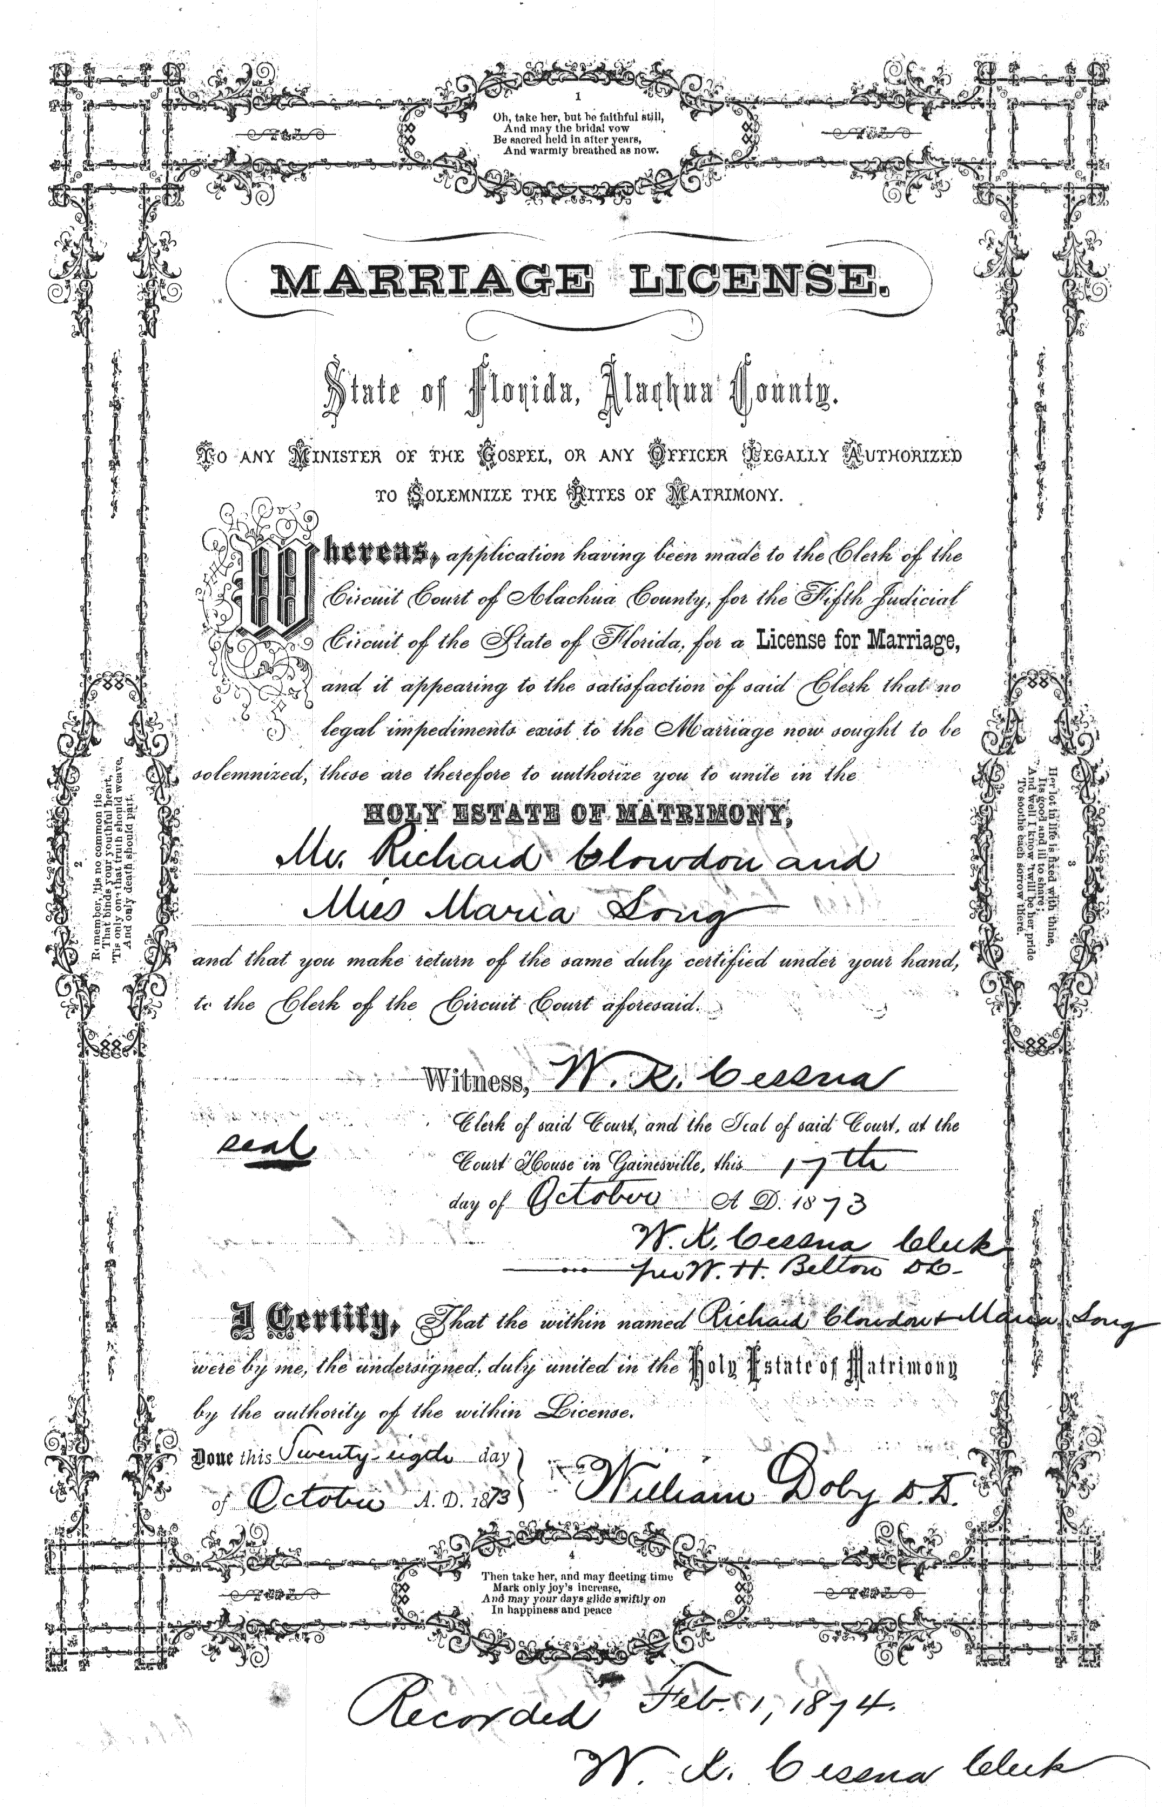 1
Oh, take her, but be faithful still,
And may the bridal vow
Be sacred held in after years,
And warmly breathed as now.
MARRIAGE LICENSE.
State of Florida, Alachua County.
To any Minister of the Gospel, or any Officer Legally Authorized
to Solemnize the Rites of Matrimony.
Whereas, application having been made to the Clerk of the
Circuit Court of Alachua County, for the Fifth Judicial
Circuit of the State of Florida, for a License for Marriage,
and it appearing to the satisfaction of said Clerk that no
legal impediments exist to the Marriage now sought to be
solemnized, these are therefore to authorize you to unite in the
HOLY ESTATE OF MATRIMONY,
Mr. Richard Clowdon and
Miss Maria Song
and that you make return of the same duly certified under your hand,
to the Clerk of the Circuit Court aforesaid.
2
Remember, 'tis no common tie
That binds your youthful heart,
'Tis only one that truth should weave,
And only death should part.
3
Her lot in life is fixed with thine,
Its good and ill to share;
And well I know 'twill be her pride
To soothe each sorrow there.
Witness, W. K. Cessna
Clerk of said Court, and the Seal of said Court, at the
seal
Court House in Gainesville, this 17th
day of October A. D. 1873
W. K. Cessna Clerk
per W. H. Belton D C
I Certify, That the within named Richard Clowdon & Maria Song
were by me, the undersigned, duly united in the Holy Estate of Matrimony
by the authority of the within License.
Done this Twenty-eigth day
of October A. D. 1873
William Doby D. D.
4
Then take her, and may fleeting time
Mark only joy's increase,
And may your days glide swiftly on
In happiness and peace
Recorded Feb. 1, 1874.
W. K. Cessna Clerk